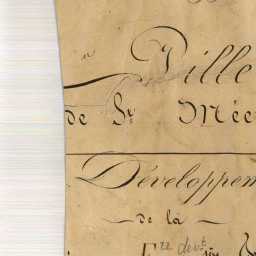 Ville
de St Mée
Développem
de la